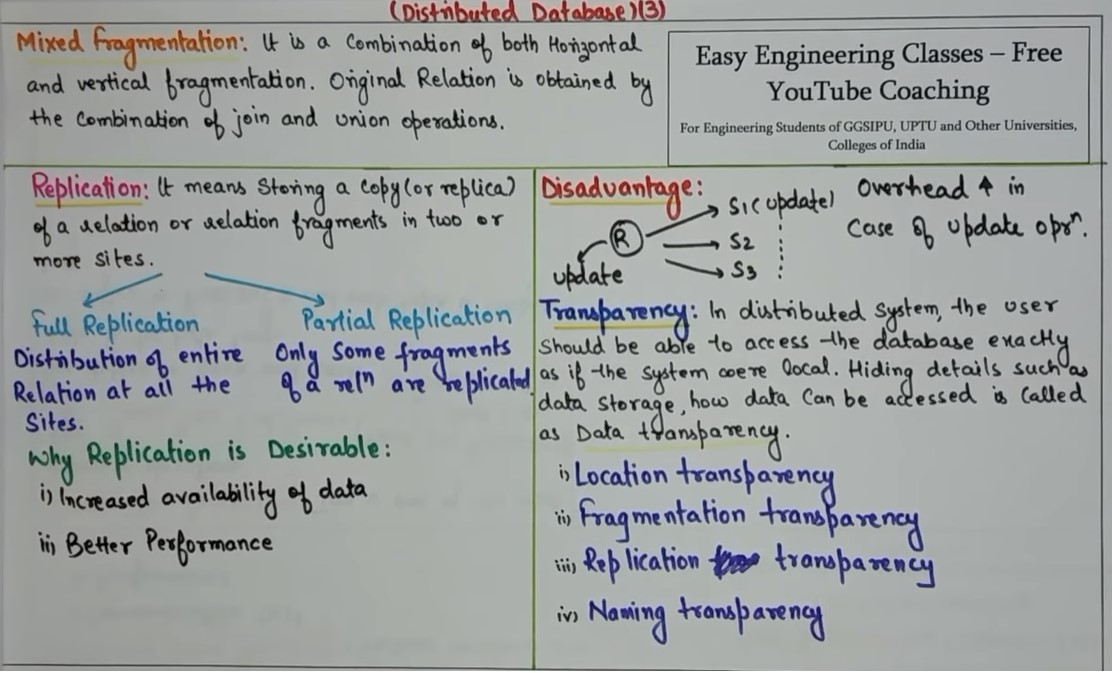 (Distributed Database)(3)
Mixed fragmentation: It is a Combination of both Horizontal
and vertical fragmentation. Original Relation is obtained by
the Combination of join and union operations.
Easy Engineering Classes – Free
YouTube Coaching
For Engineering Students of GGSIPU, UPTU and Other Universities,
Colleges of India
Replication: It means Storing a copy (or replica)
of a relation or relation fragments in two or
more sites.
Full Replication
Distribution of entire
Relation at all the
Sites.
Partial Replication
Only Some fragments
of a relⁿ are replicated.
Why Replication is Desirable:
i) Increased availability of data
ii) Better Performance
Disadvantage:
R
update
S1 (update)
S2
S3
Overhead ↑ in
Case of update oprⁿ.
Transparency: In distributed System, the user
Should be able to access the database exactly
as if the system were local. Hiding details such as
data storage, how data Can be accessed is Called
as Data transparency.
i) Location transparency
ii) Fragmentation transparency
iii) Replication transparency
iv) Naming transparency